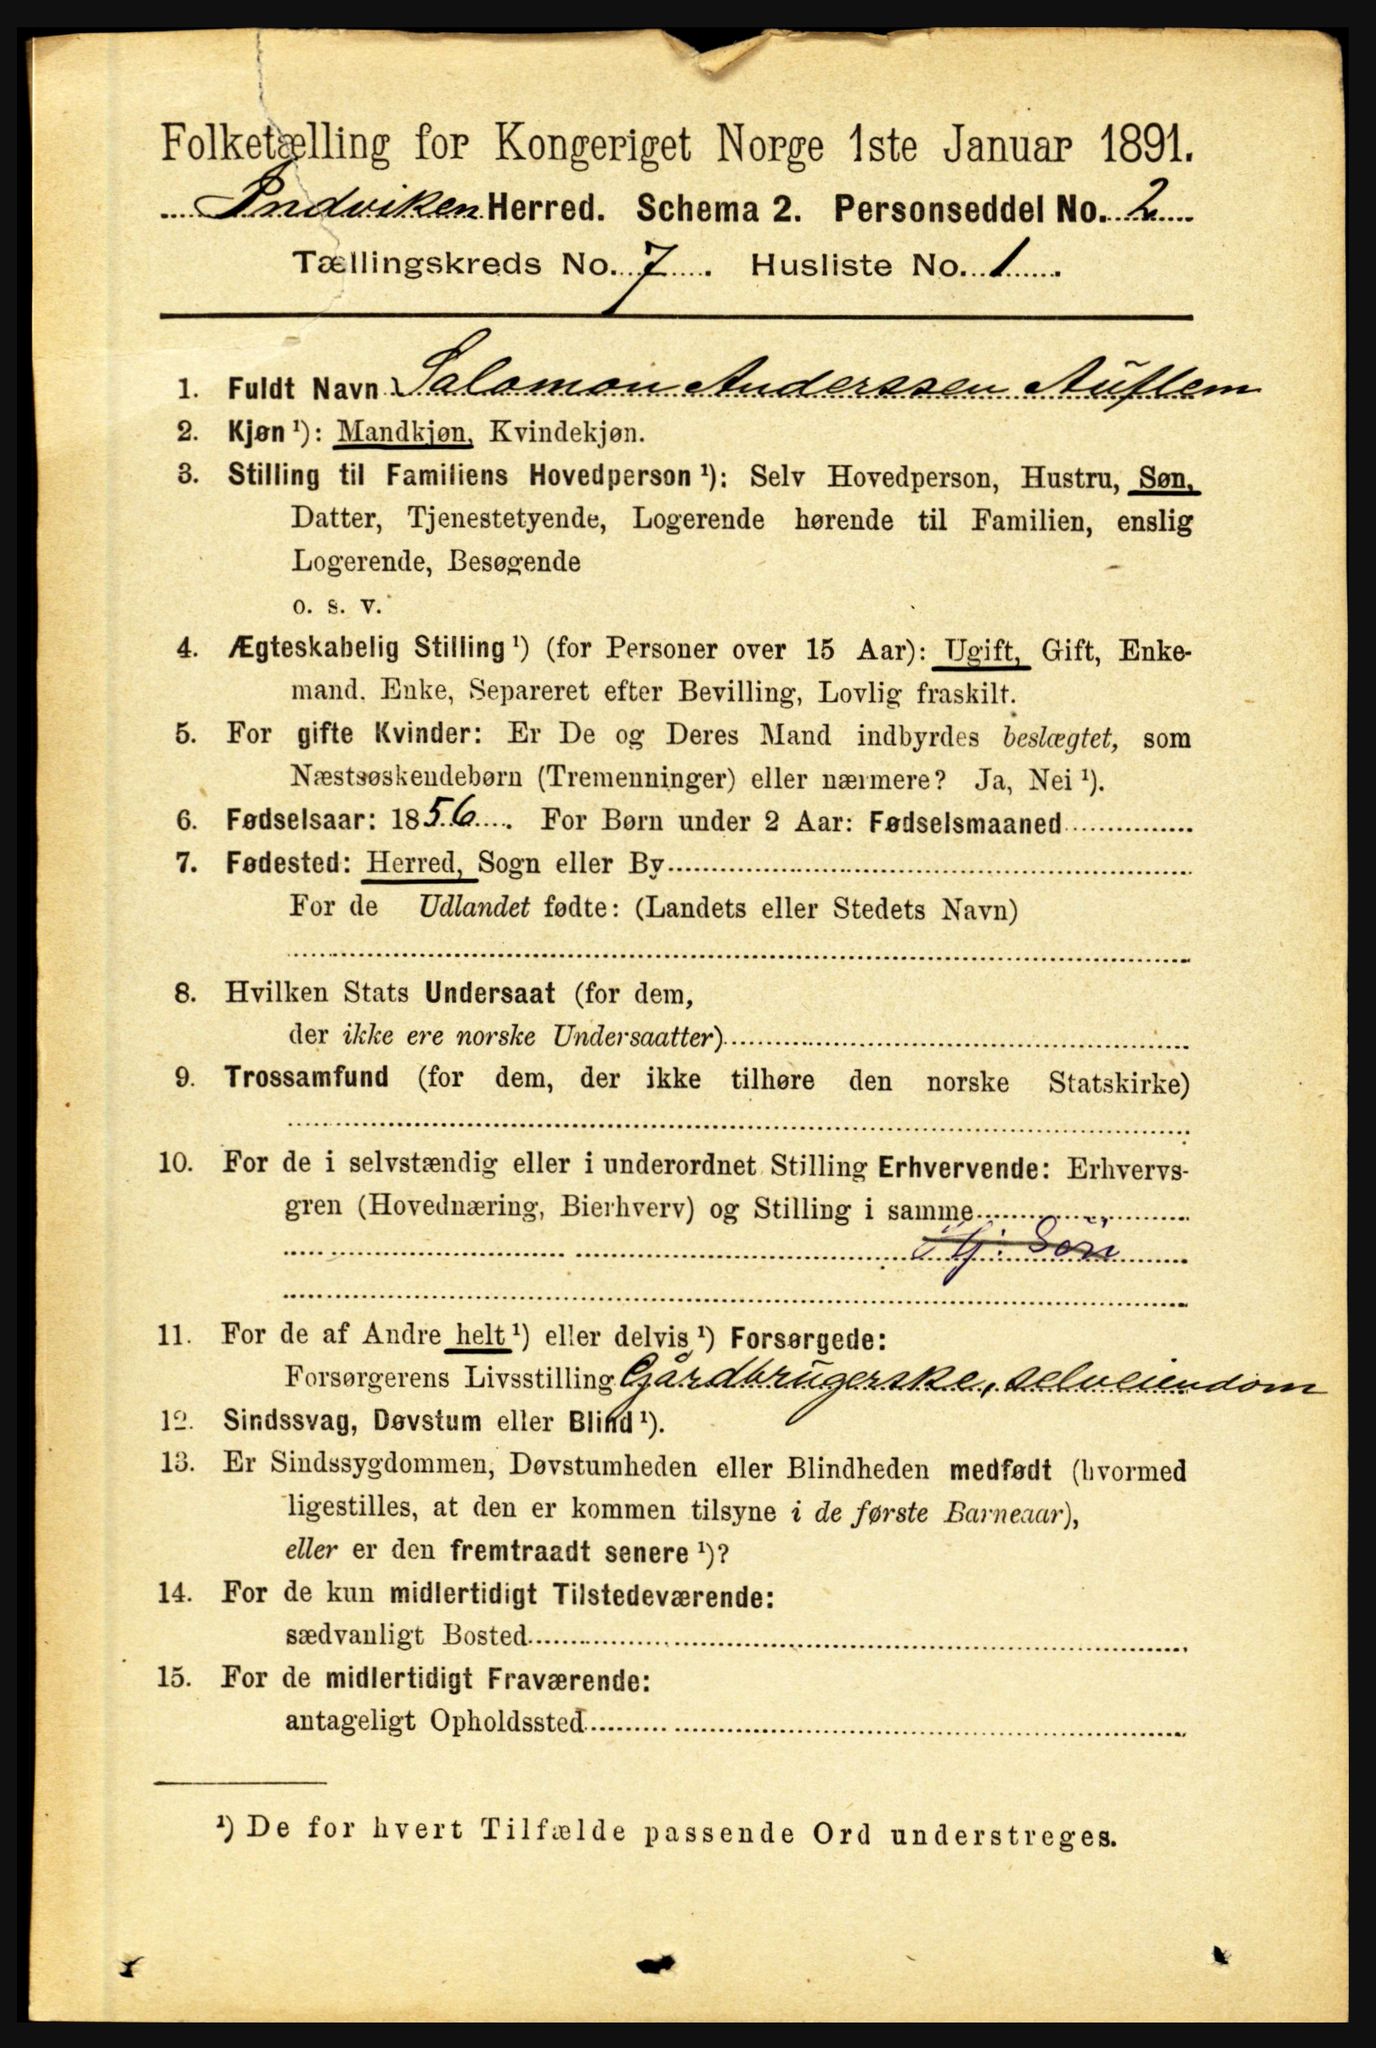 Folketælling for Kongeriget Norge 1ste Januar 1891.
Indviken Herred. Schema 2. Personseddel No. 2
Tællingskreds No. 7. Husliste No. 1
1. Fuldt Navn Salomon Anderssen Auflem
2. Kjøn ¹): Mandkjøn, Kvindekjøn.
3. Stilling til Familiens Hovedperson ¹): Selv Hovedperson, Hustru, Søn,
Datter, Tjenestetyende, Logerende hørende til Familien, enslig
Logerende, Besøgende
o. s. v.
4. Ægteskabelig Stilling ¹) (for Personer over 15 Aar): Ugift, Gift, Enke-
mand, Enke, Separeret efter Bevilling, Lovlig fraskilt.
5. For gifte Kvinder: Er De og Deres Mand indbyrdes beslægtet, som
Næstsøskendebørn (Tremenninger) eller nærmere? Ja, Nei ¹).
6. Fødselsaar: 1856. For Børn under 2 Aar: Fødselsmaaned
7. Fødested: Herred, Sogn eller By
For de Udlandet fødte: (Landets eller Stedets Navn)
8. Hvilken Stats Undersaat (for dem,
der ikke ere norske Undersaatter)
9. Trossamfund (for dem, der ikke tilhøre den norske Statskirke)
10. For de i selvstændig eller i underordnet Stilling Erhvervende: Erhvervs-
gren (Hovednæring, Bierhverv) og Stilling i samme
Søn
11. For de af Andre helt ¹) eller delvis ¹) Forsørgede:
Forsørgerens Livsstilling Gårdbrugerske, selveiendom
12. Sindssvag, Døvstum eller Blind ¹).
13. Er Sindssygdommen, Døvstumheden eller Blindheden medfødt (hvormed
ligestilles, at den er kommen tilsyne i de første Barneaar),
eller er den fremtraadt senere ¹)?
14. For de kun midlertidigt Tilstedeværende:
sædvanligt Bosted
15. For de midlertidigt Fraværende:
antageligt Opholdssted
¹) De for hvert Tilfælde passende Ord understreges.